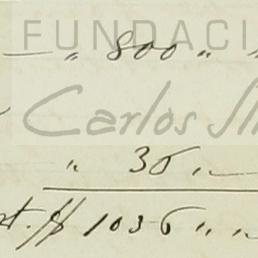 FUNDACI
— „ 800 „ „
Carlos Sli
„ 36 „ —
t. $ 1036 „ „